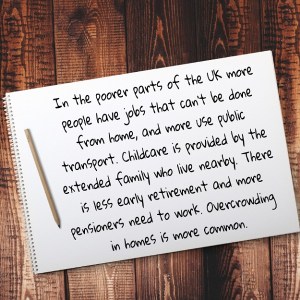 In the poorer parts of the UK more
people have jobs that can't be done
from home, and more use public
transport. Childcare is provided by the
extended family who live nearby. There
is less early retirement and more
pensioners need to work. Overcrowding
in homes is more common.